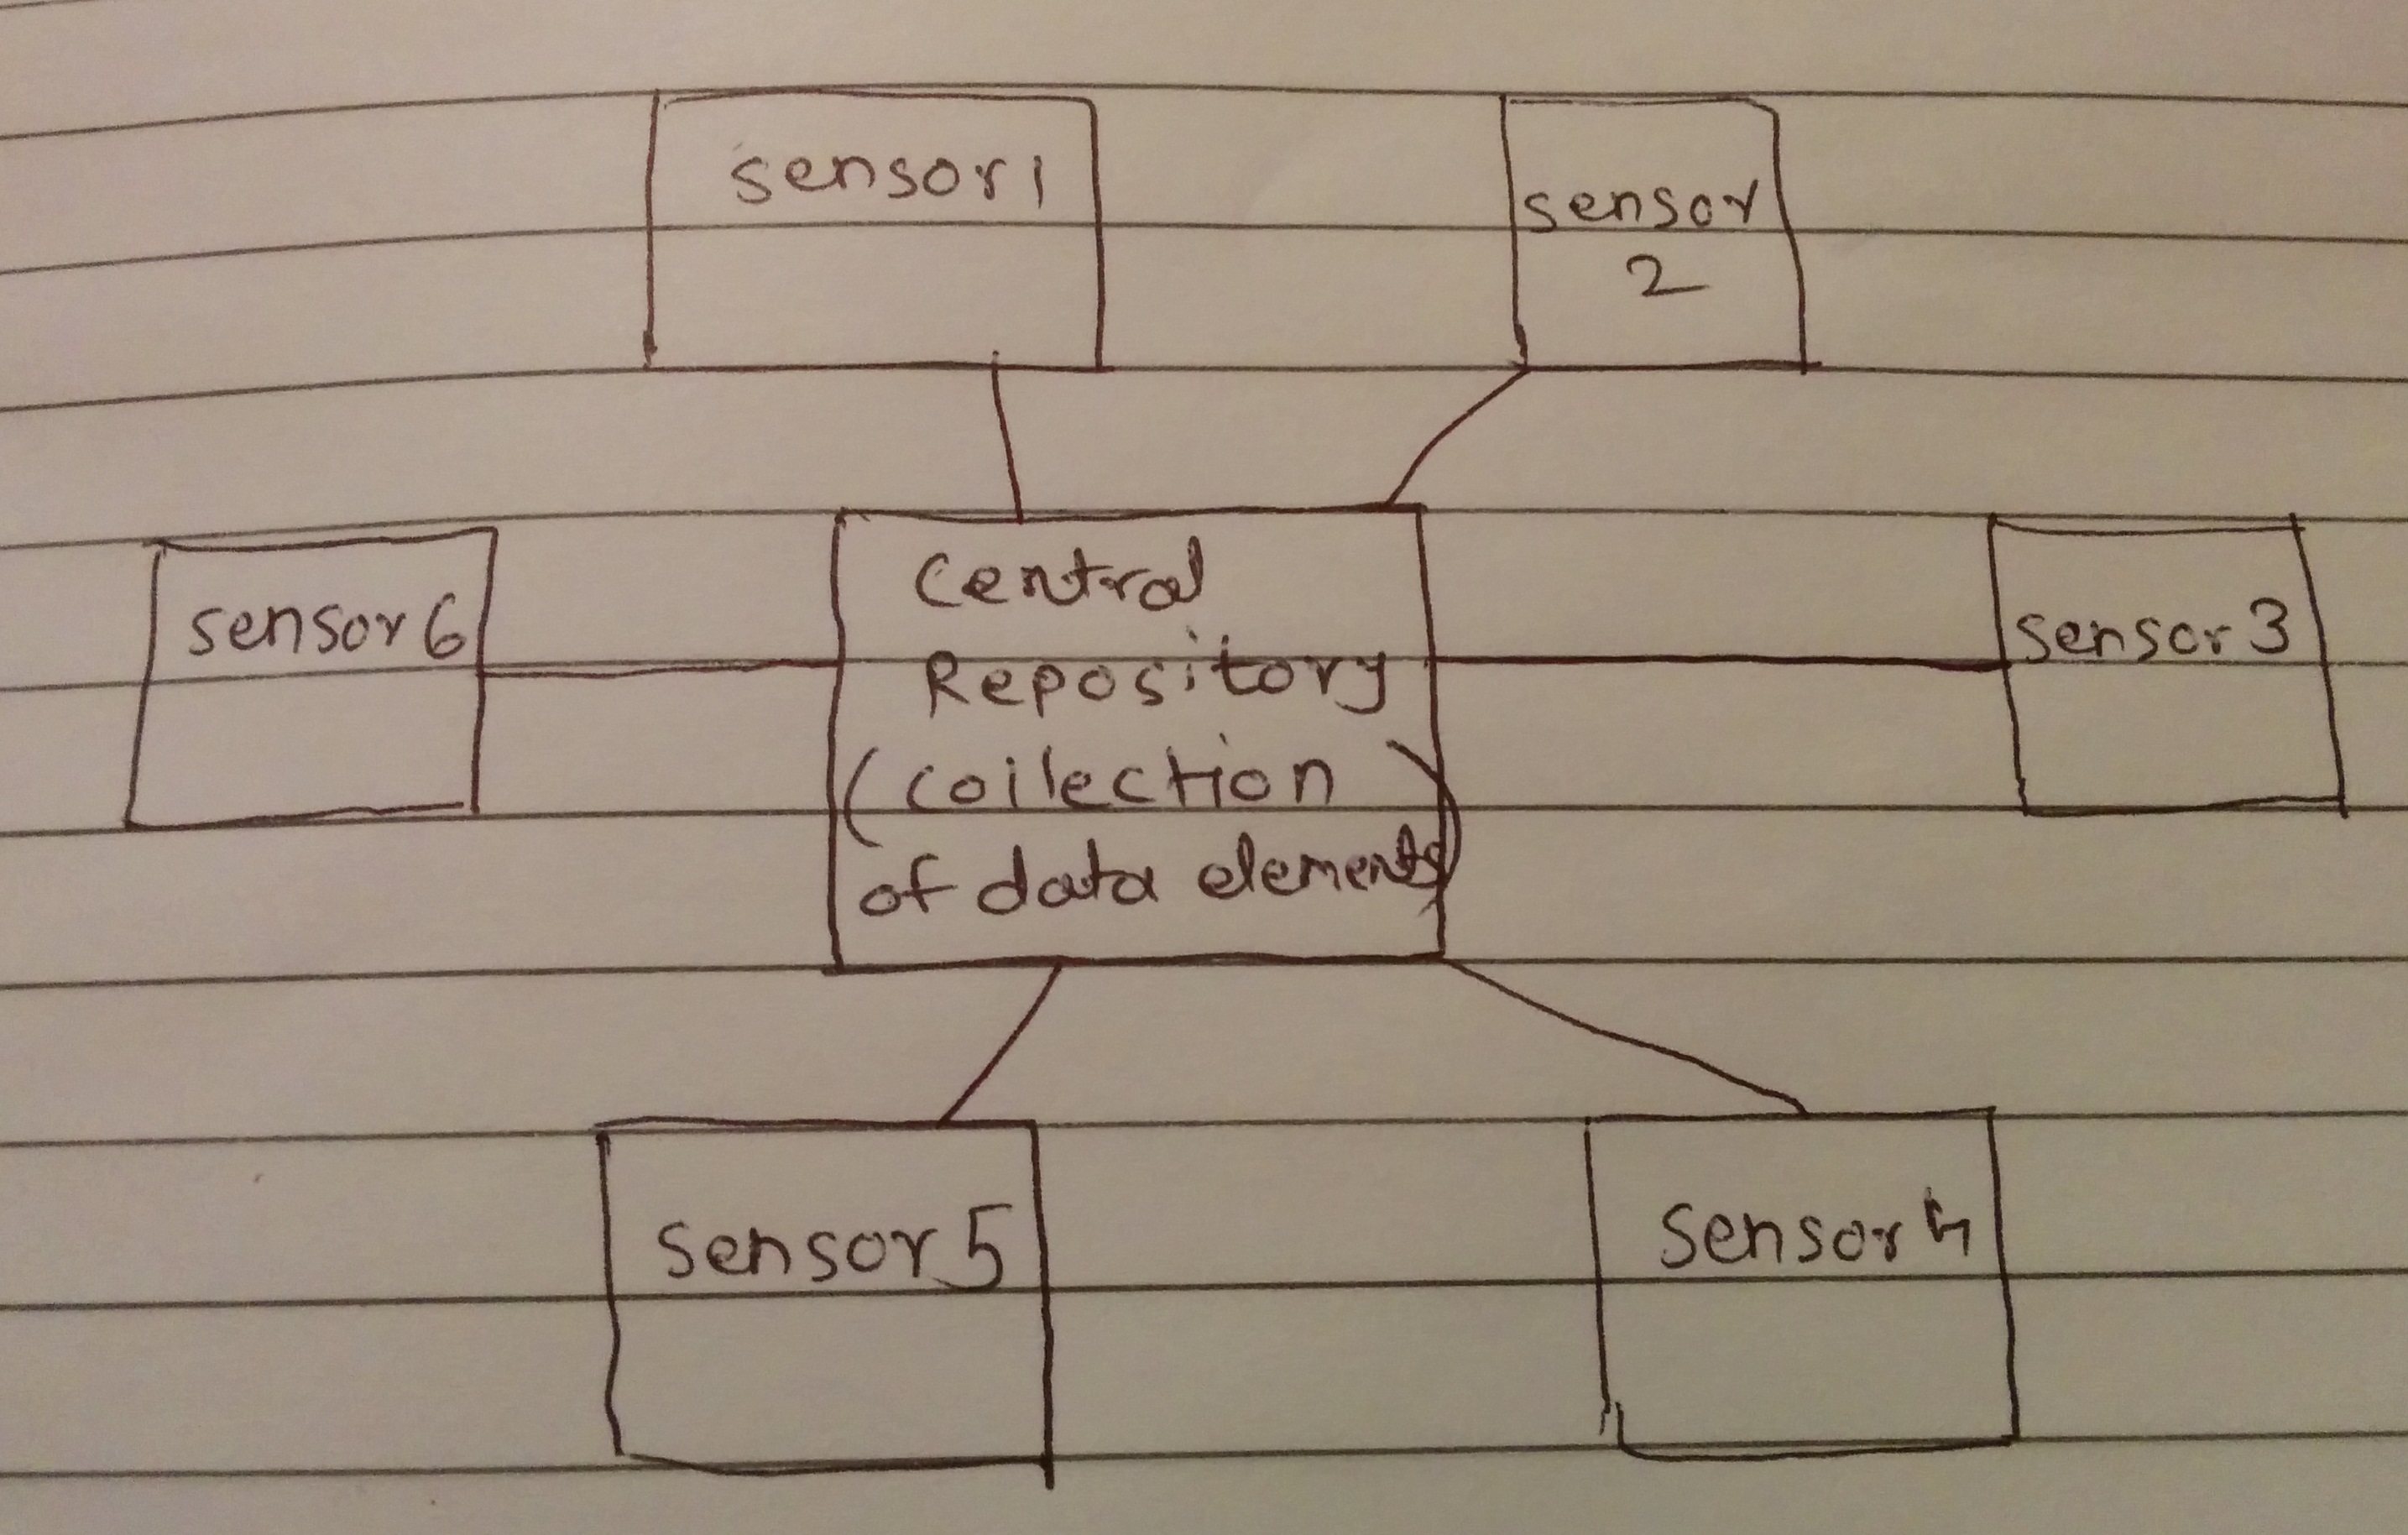 sensor1
sensor
2
sensor6
Central
Repository
(collection
of data elements)
sensor3
sensor5
sensor4